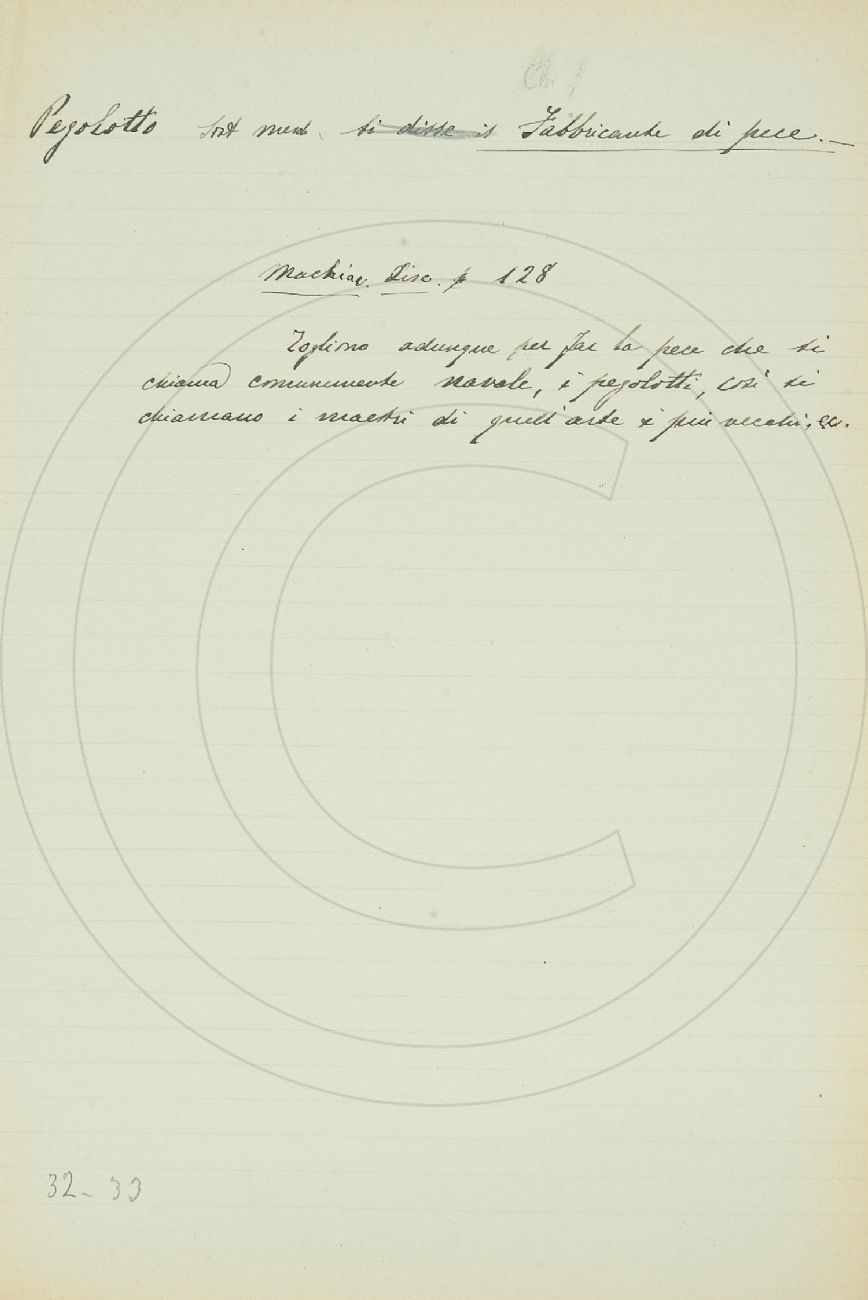 Pegolotto Sost masc. si disse il Fabbricante di pece. —
Machiav. Disc. p 128
Togliono adunque per far la pece che si
chiama comunemente navale, i pegolotti, così si
chiamano i maestri di quell'arte i più vecchi, ec.
32-33